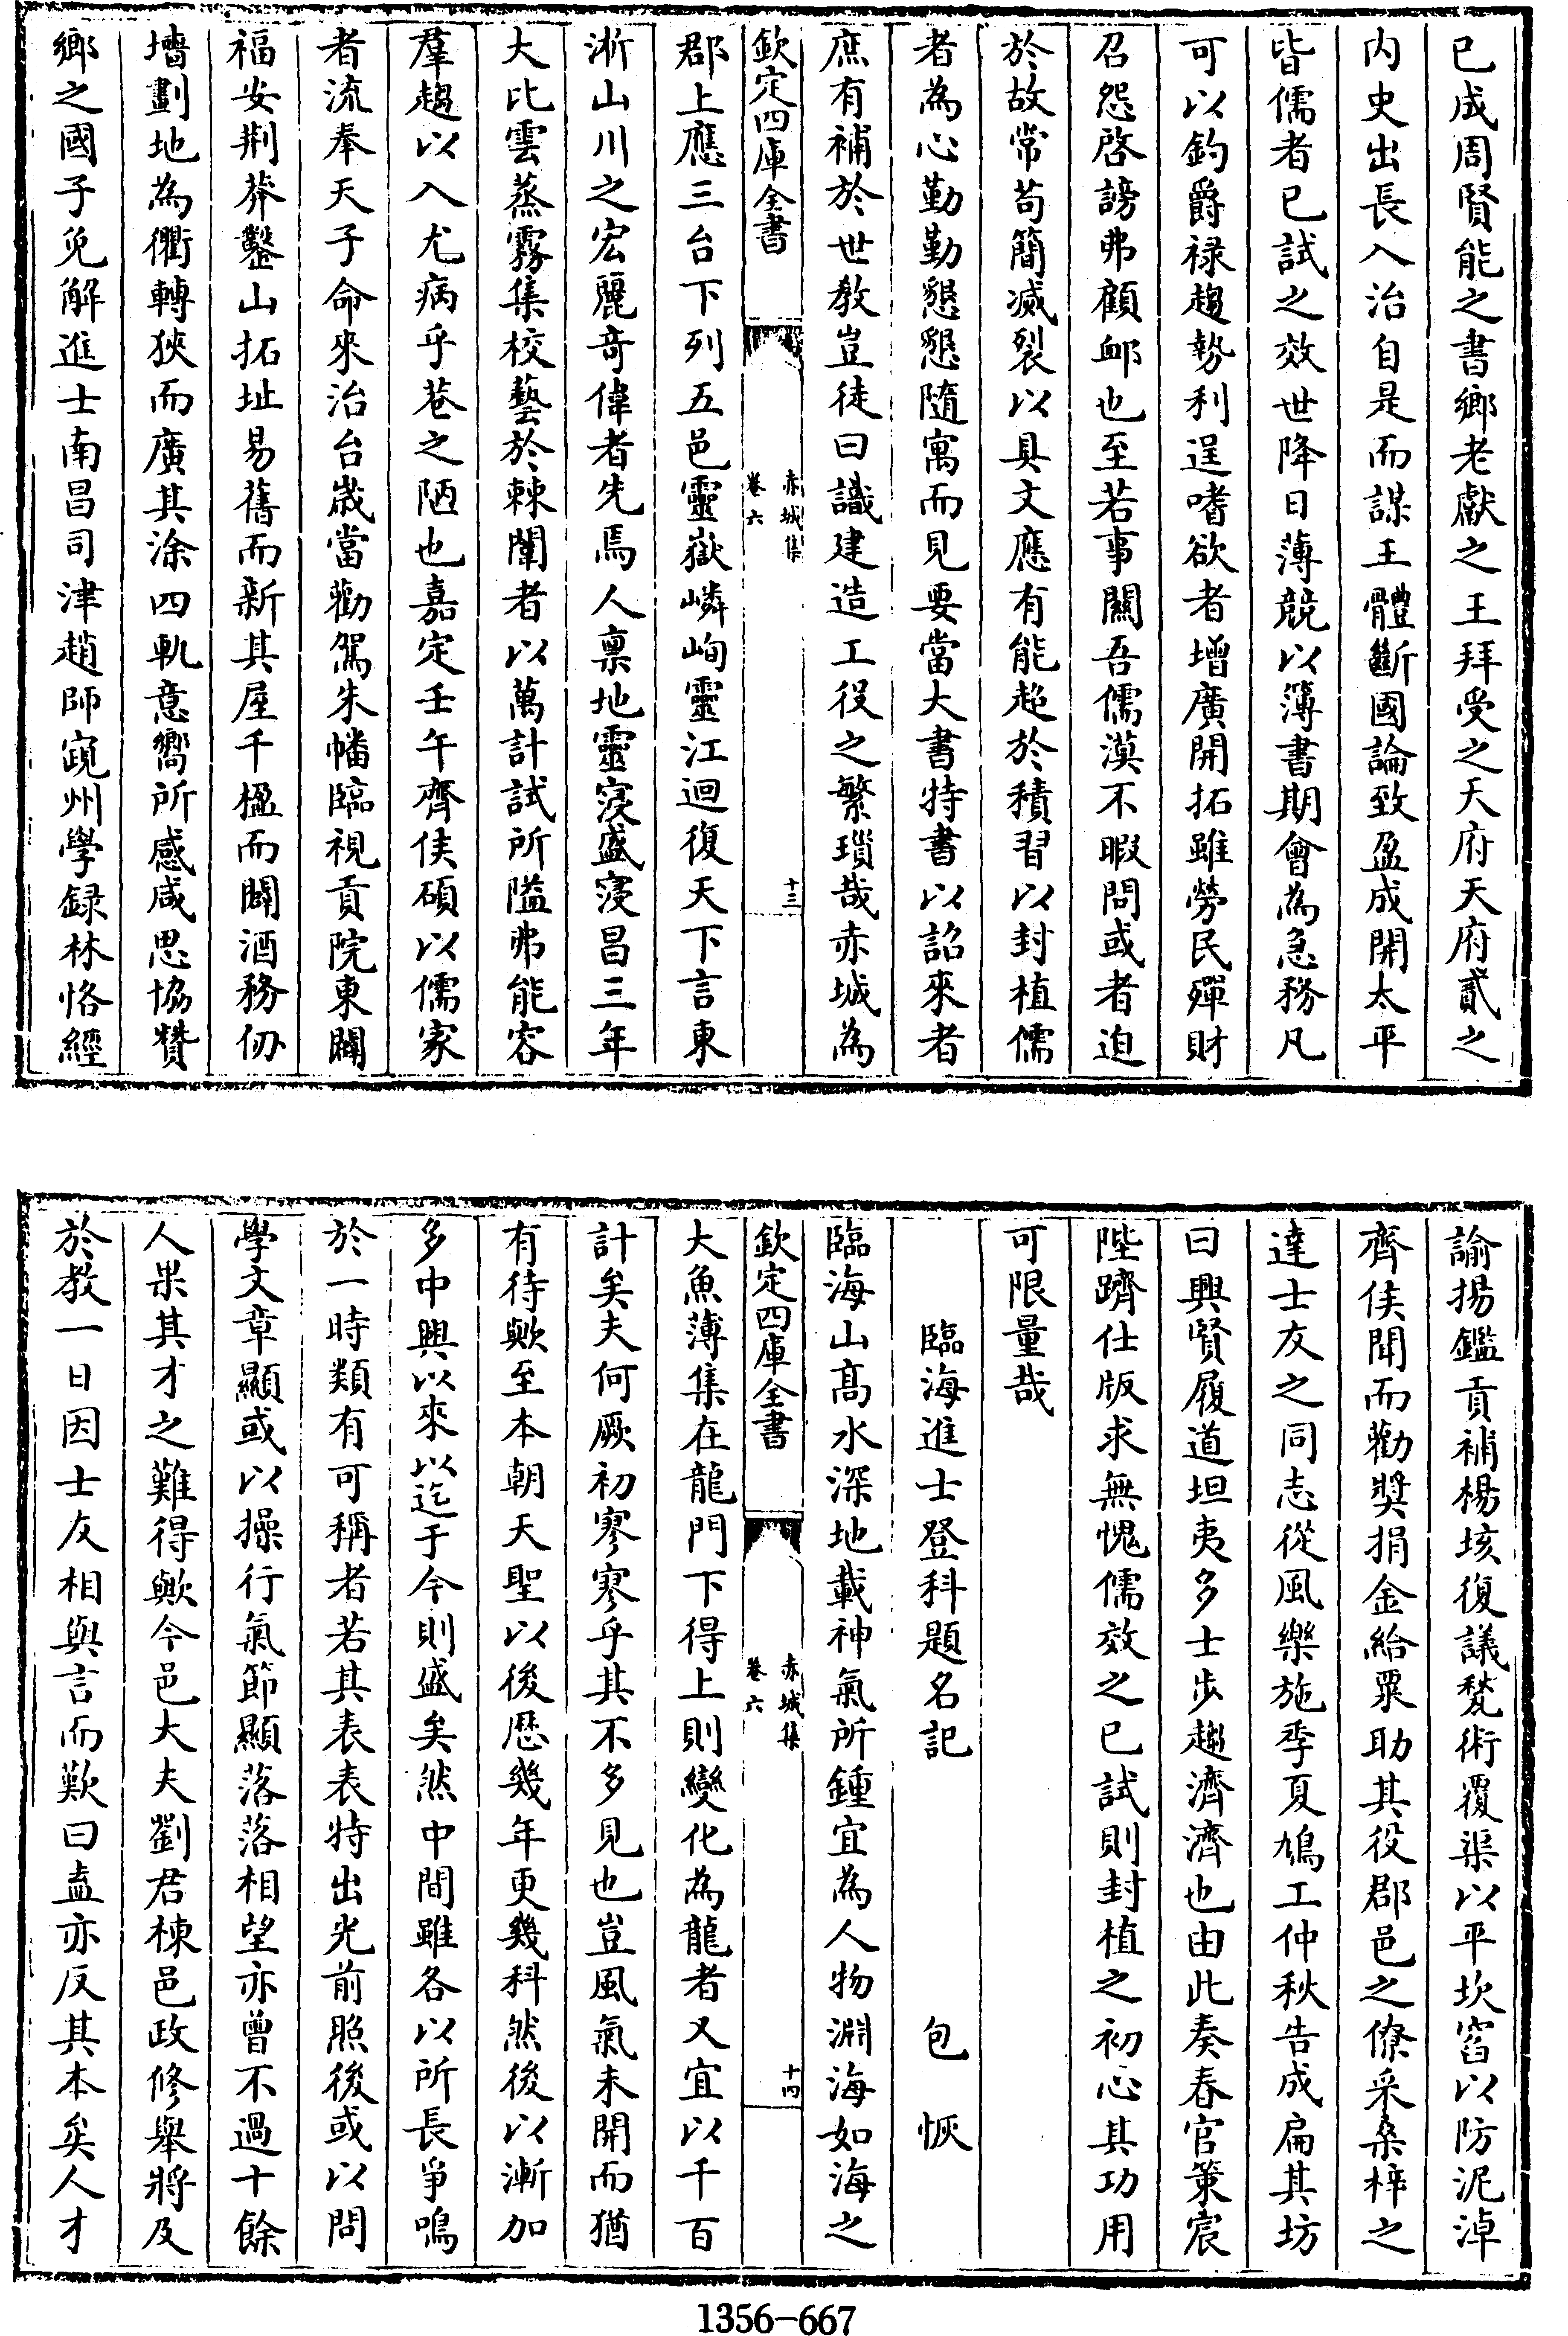 已成周賢能之書鄉老獻之王拜受之天府天府貳之
内史出長入治自是而謀王體斷國論致盈成開太平
皆儒者已試之效世降日薄競以簿書期會為急務凡
可以釣爵禄趨勢利逞嗜欲者增廣開拓雖勞民殫財
召怨啓謗弗顧卹也至若事關吾儒漠不暇問或者迫
於故常苟簡滅裂以具文應有能超於積習以封植儒
者為心勤勤懇懇隨寓而見要當大書特書以詔來者
庶有補於世教豈徒曰識建造工役之繁瑣哉赤城為
欽定四庫全書
赤城集
卷六
十三
郡上應三台下列五邑靈嶽嶙峋靈江迴復天下言東
淛山川之宏麗竒偉者先焉人稟地靈寖盛寖昌三年
大比雲蒸霧集校藝於棘闈者以萬計試所隘弗能容
羣趨以入尤病乎巷之陋也嘉定壬午齊侯碩以儒家
者流奉天子命來治台歲當勸駕朱幡臨視貢院東闢
福安荆莽鑿山拓址易舊而新其屋千楹而闢酒務仞
墻劃地為衢轉狹而廣其涂四軌意嚮所感咸思協贊
鄉之國子免解進士南昌司津趙師𥧲州學録林恪經
諭揚鑑貢補楊垓復議甃術覆渠以平坎窞以防泥淖
齊侯聞而勸奬捐金給粟助其役郡邑之僚采桑梓之
達士友之同志從風樂施季夏鳩工仲秋告成扁其坊
曰興賢履道坦夷多士步趨濟濟也由此奏春官策宸
陛躋仕版求無愧儒效之已試則封植之初心其功用
可限量哉
臨海進士登科題名記 包恢
臨海山髙水深地載神氣所鍾宜為人物淵海如海之
欽定四庫全書
赤城集
卷六
十四
大魚薄集在龍門下得上則變化為龍者又宜以千百
計矣夫何厥初寥寥乎其不多見也豈風氣未開而猶
有待歟至本朝天聖以後歴幾年更幾科然後以漸加
多中興以來以迄于今則盛矣然中間雖各以所長爭鳴
於一時類有可稱者若其表表特出光前照後或以問
學文章顯或以操行氣節顯落落相望亦曾不過十餘
人果其才之難得歟今邑大夫劉君棟邑政修舉將及
於教一日因士友相與言而歎曰盍亦反其本矣人才
1356-667